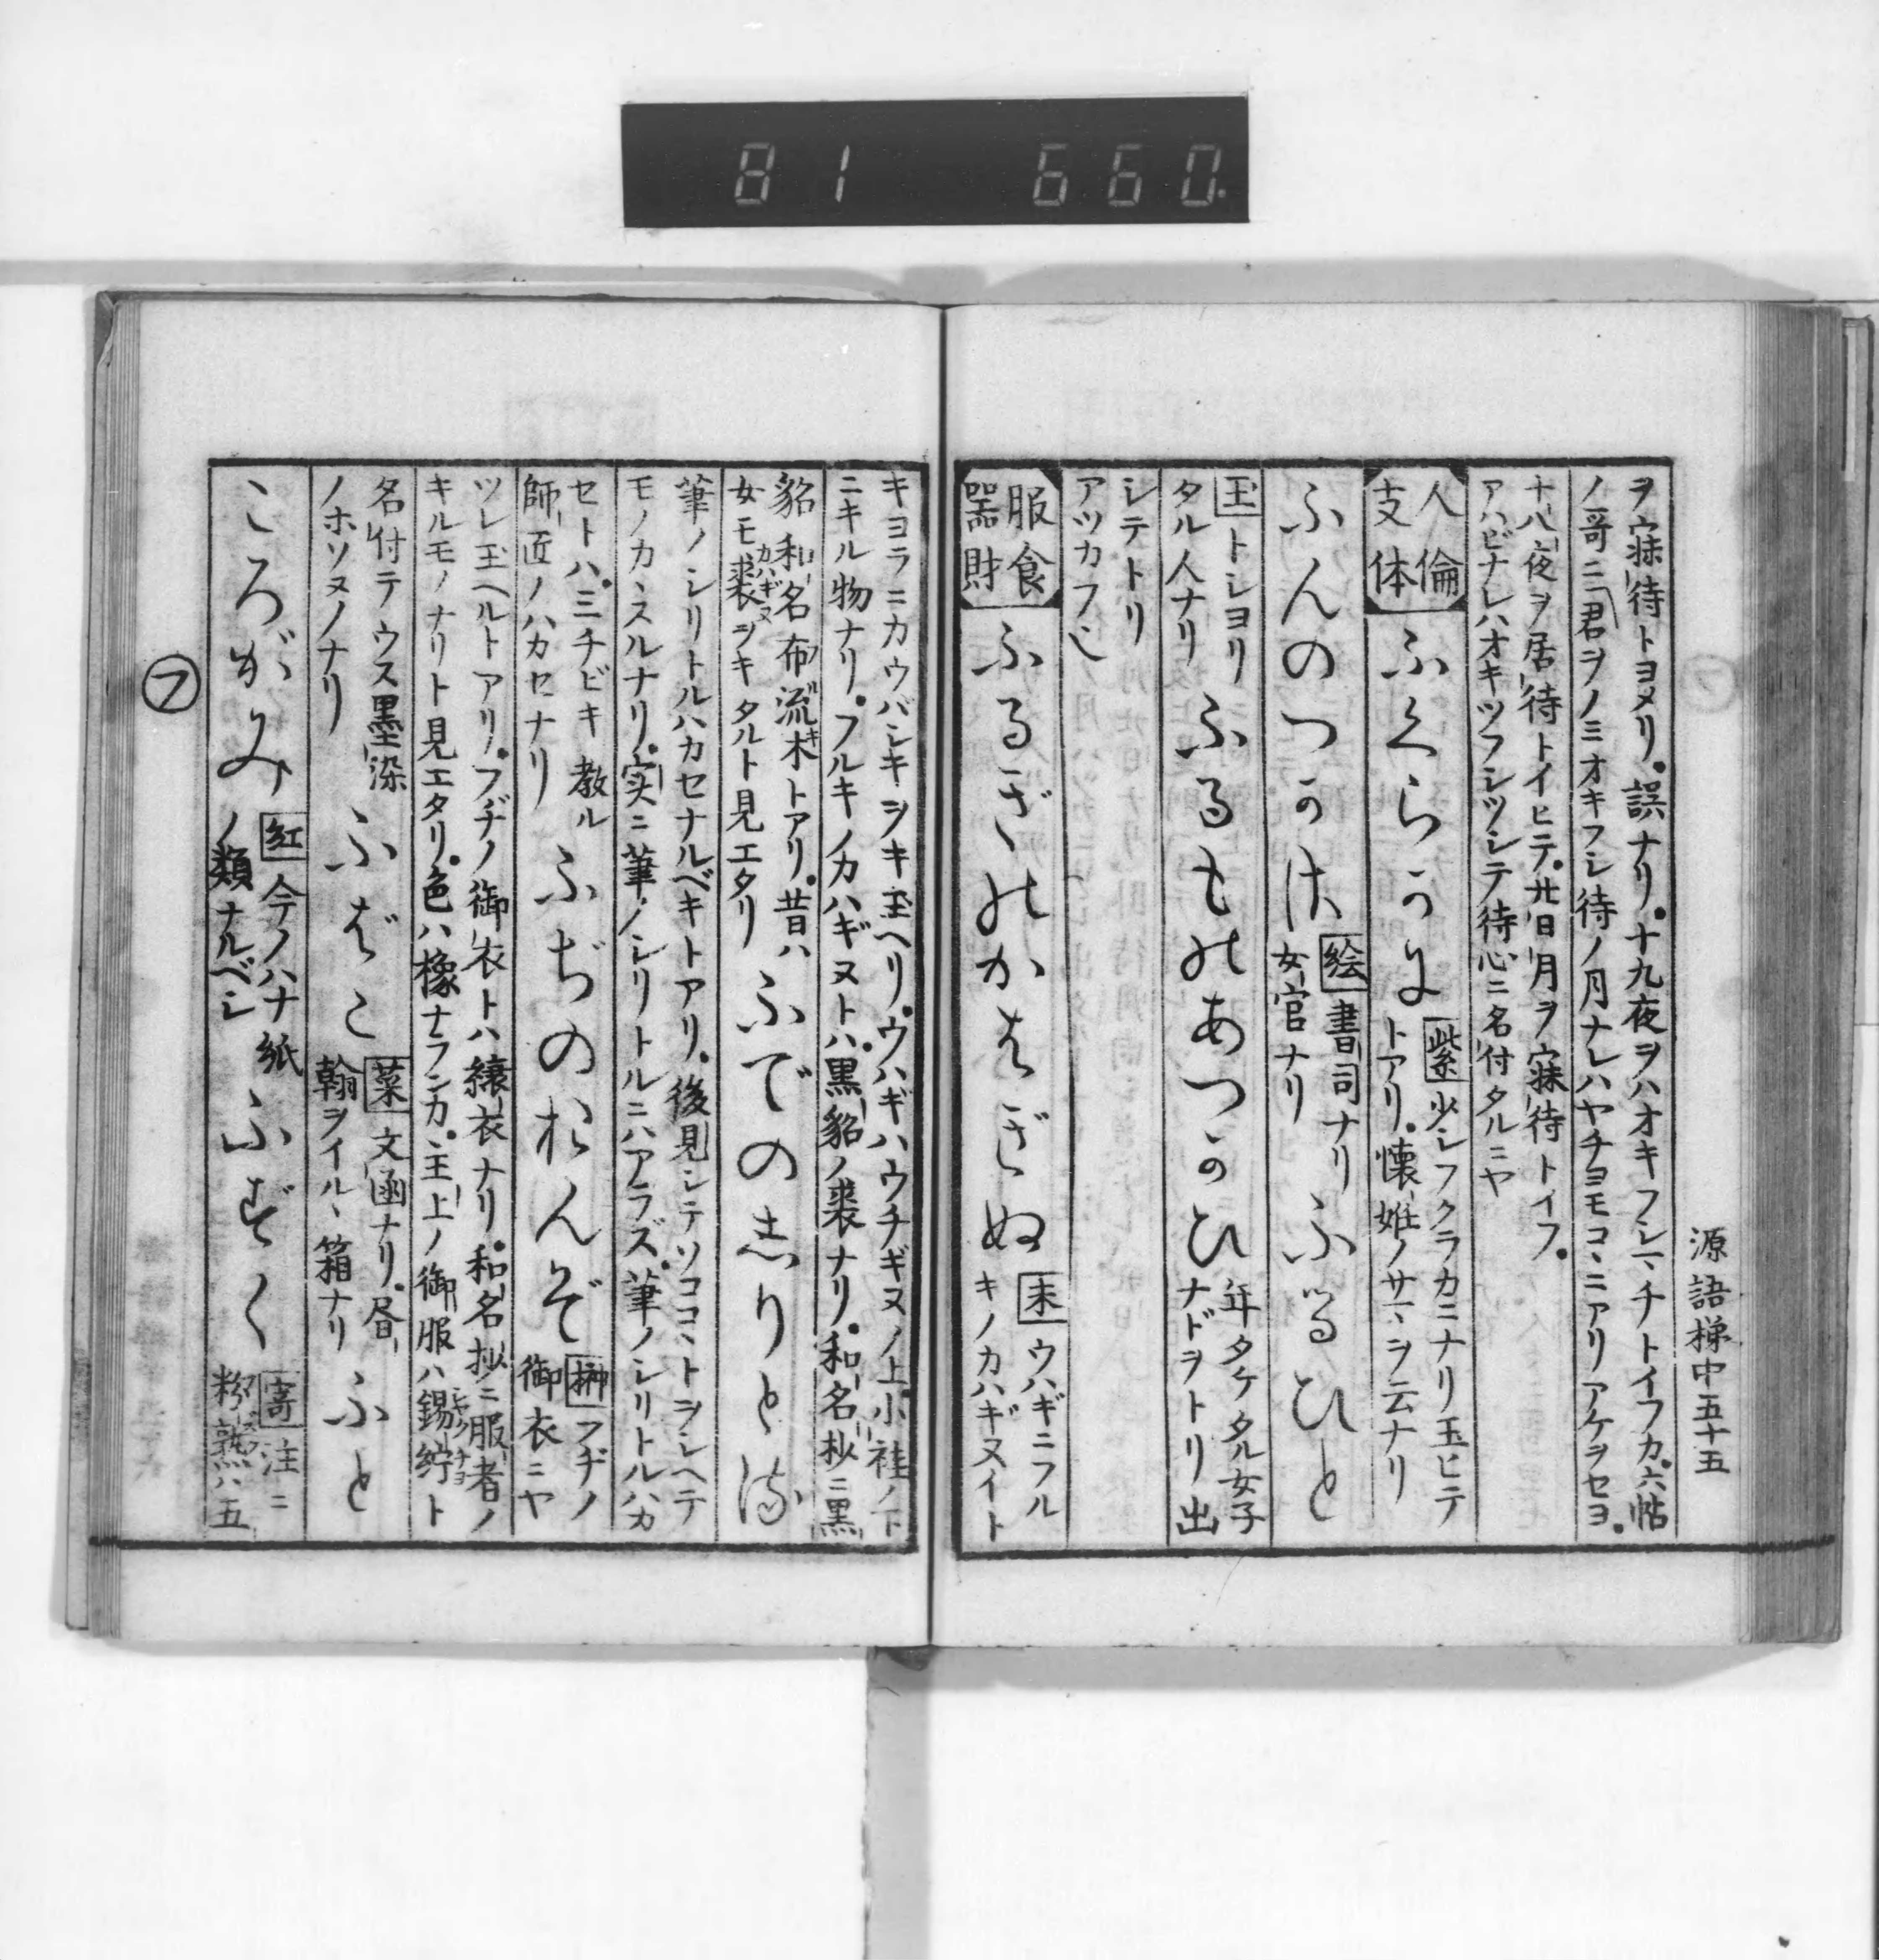 81 660.
源語梯中五十五
ヲ寐待トヨメリ。誤ナリ。十九夜ヲハオキフシマチトイフカ。六帖
ノ哥ニ君ヲノミオキフシ待ノ月ナレハヤチヨモコヽニアリアケヲセヨ。
十八夜ヲ居待トイヒテ。廿日月ヲ寐待トイフ。
アハビナレハオキツフシツシテ待心ニ名付タルニヤ
人倫
支体
ふくらかに
紫 少シフクラカニナリ玉ヒテ
トアリ。懐妊ノサマヲ云ナリ
ふんのつかさ
絵 書司ナリ
女官ナリ
ふるひと
玉 トシヨリ
タル人ナリ
ふるものあつかひ
年タケタル女子
ナドヲトリ出
シテトリ
アツカフ也
服食
器財
ふるきのかはぎぬ
末 ウハギニフル
キノカハギヌイト
キヨラニカウバシキヲキ玉ヘリ。ウハギハウチギヌノ上小袿ノ下
ニキル物ナリ。フルキノカハギヌトハ。黒貂ノ裘ナリ。和名抄ニ黒
貂 和名布流木トアリ。昔ハ
女モ裘ヲキタルト見エタリ
ふでのしりとる
筆ノシリトルハカセナルベキトアリ。後見シテソココヽトヲシヘテ
モノカヽスルナリ。実ニ筆ノシリトルニハアラズ。筆ノシリトルハカ
セトハ。ミチビキ教ル
師匠ノハカセナリ
ふぢのおんぞ
榊 フヂノ
御衣ニヤ
ツレ玉ヘルトアリ。フヂノ御衣トハ縗衣ナリ。和名抄ニ服者ノ
キルモノナリト見エタリ。色ハ橡ナランカ。主上ノ御服ハ錫紵ト
名付テウス墨染
ノホソヌノナリ
ふばこ
菜 文函ナリ。昼
翰ヲイルヽ箱ナリ
ふと
ころがみ
紅 今ノハナ紙
ノ類ナルベシ
ふずく
寄 注ニ
粉熟ハ五
フ